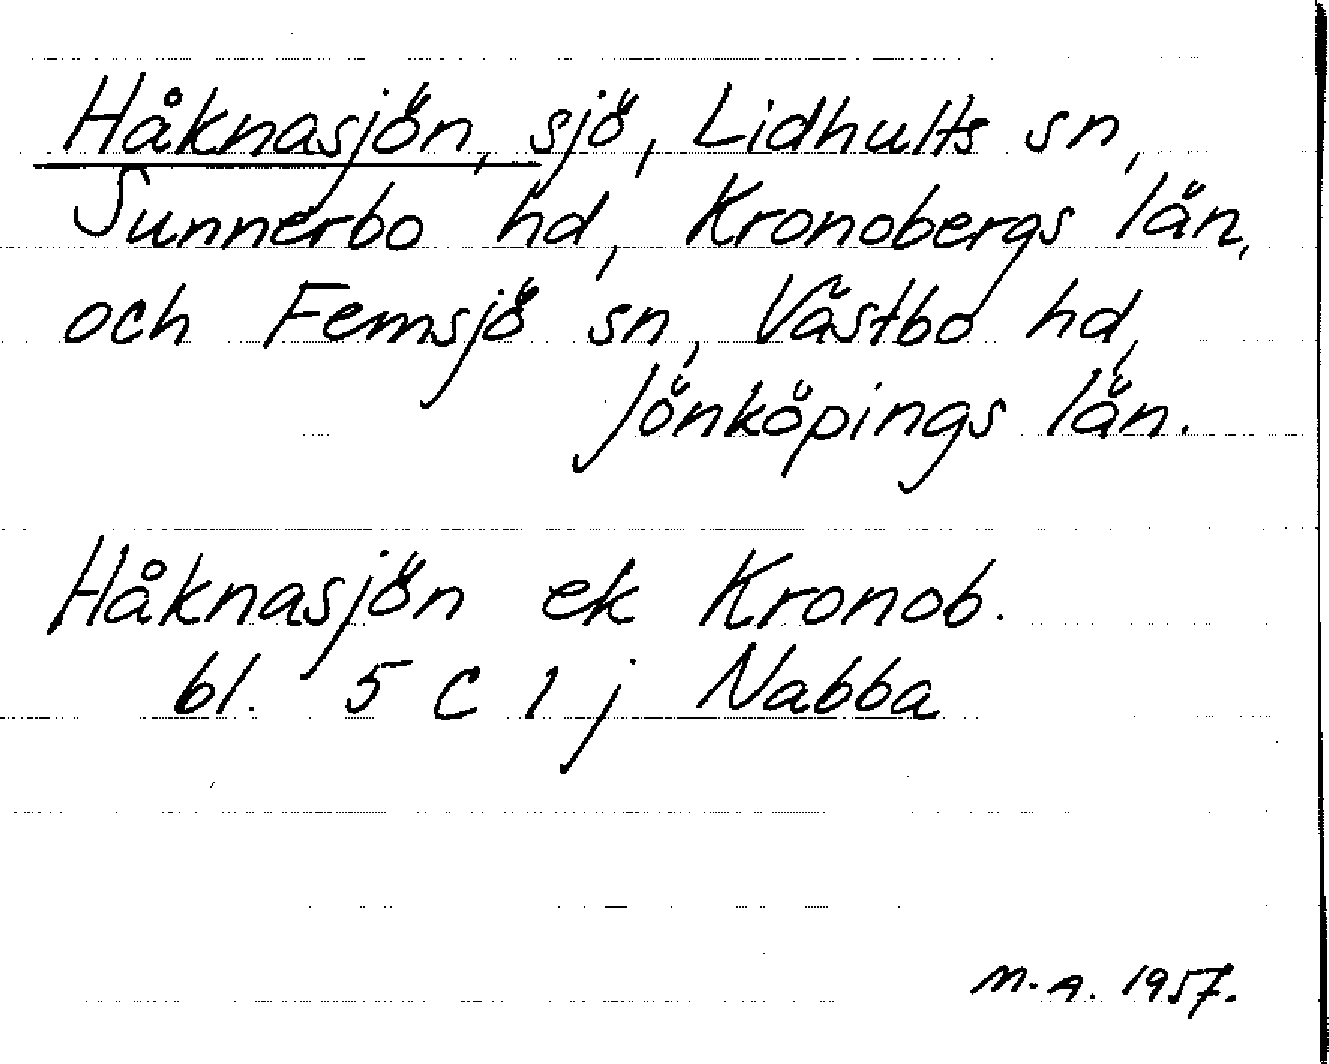 Håknasjön, sjö, Lidhults sn,
Sunnerbo hd, Kronobergs län,
och Femsjö sn, Västbo hd,
Jönköpings län.
Håknasjön ek Kronob.
bl. 5 C 1 j Nabba
M.A. 1957.